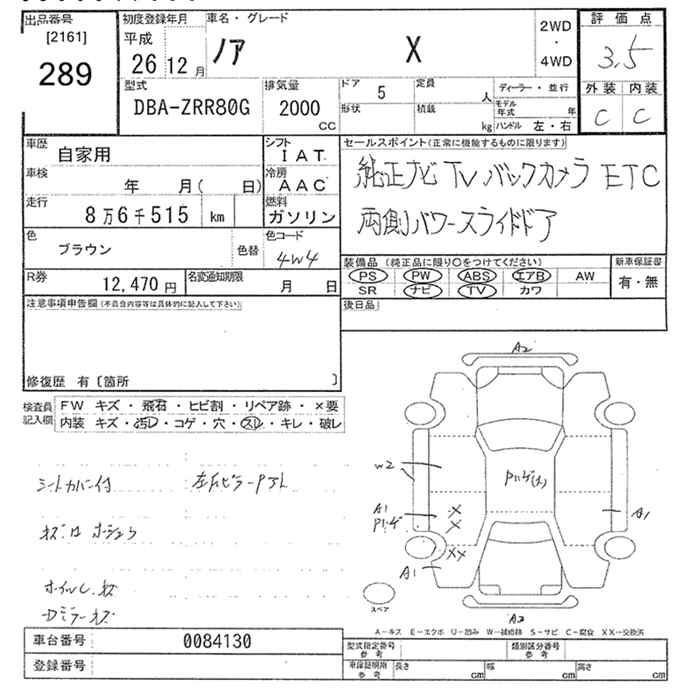 出品番号
[2161]
289
初度登録年月
平成
26 12 月
車名・グレード
ノア X
2WD
・
4WD
評価点
3.5
外装 内装
C C
型式
DBA-ZRR80G
排気量
2000
CC
ドア 5
形状
定員 人
積載 kg
ディーラー・並行
モデル年式 年
ハンドル 左・右
車歴
自家用
シフト
I A T
車検
年 月( 日)
冷房
A A C
走行
8万6千515 km
燃料
ガソリン
セールスポイント(正常に機能するものに限ります)
純正ナビ TV バックカメラ ETC
両側パワースライドドア
色
ブラウン
色替
色コード
4W4
R券
12,470 円
名変通知期限
月 日
装備品 (純正品に限り〇をつけてください)
PS PW ABS エアB AW
SR ナビ TV カワ
新車保証書
有・無
注意事項申告欄(不具合内容等は具体的に記入して下さい)
後日品
修復歴 有〔箇所 〕
検査員
記入欄
FW キズ・飛石・ヒビ割・リペア跡・×要
内装 キズ・汚レ・コゲ・穴・スレ・キレ・破レ
シートカバー付
ホイルキズ
Dミラーキズ
A2
W2
A1
A1
X
X
XX
A1
スペア
A2
A-キズ E-エクボ U-凹み W-補修跡 S-サビ C-腐食 XX-交換済
車台番号 0084130
登録番号
型式指定番号
参考
類別区分番号
参考
車庫証明用
参考
長さ cm 幅 cm 高さ cm